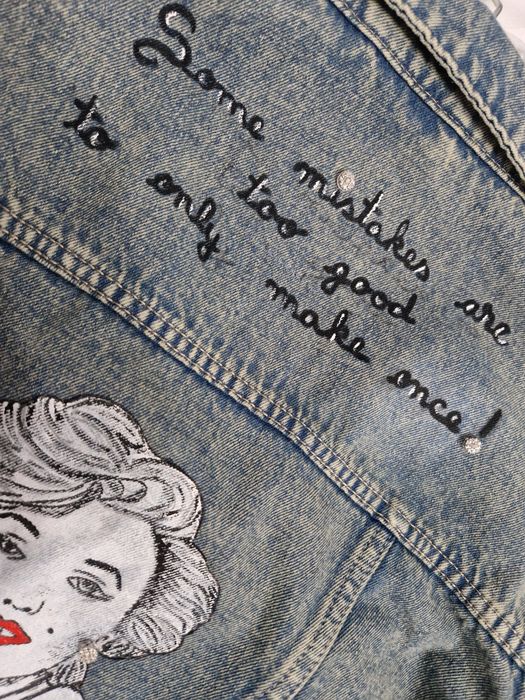 Some mistakes are
too good
to only make once!